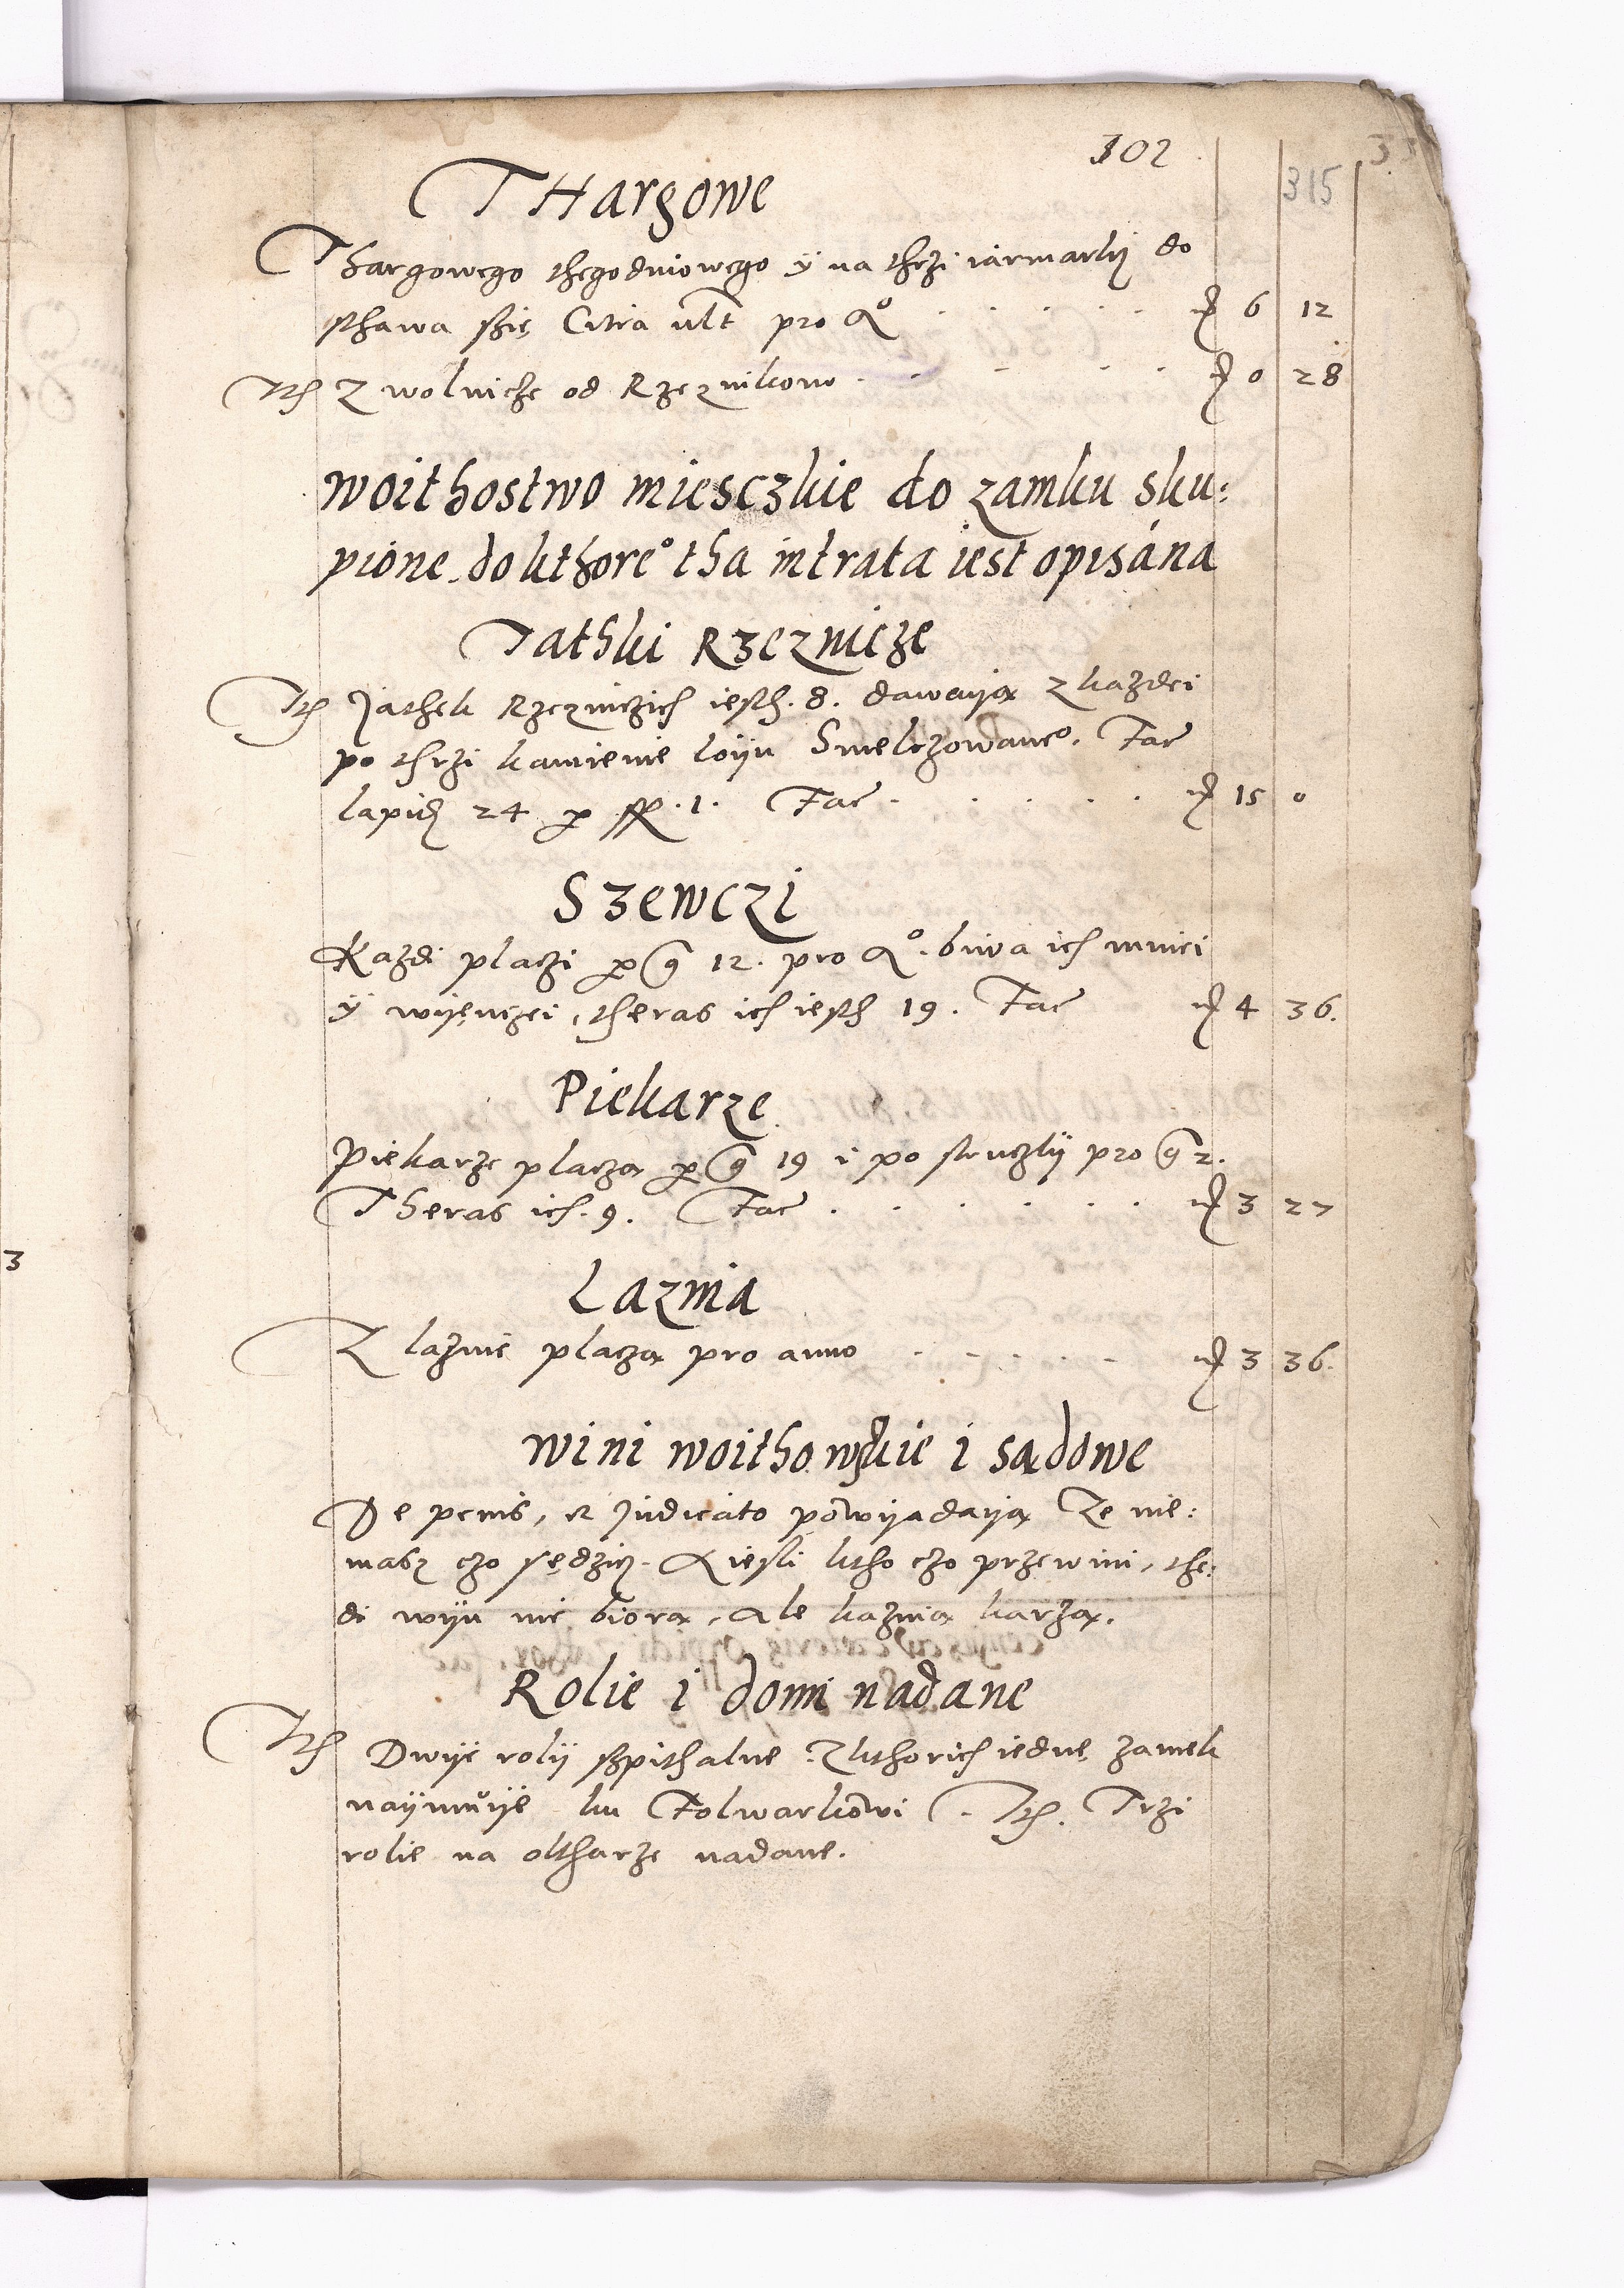 302
315
THargowe
Thargowego thegodniowego ÿ na thrzi iarmarky do
sthawa szię Citra ult pro Aº . . . . . ƒ 6 12
Ith Z wolnicze od Rzeznikow . . . . ƒ 0 28
woithostwo miesczkie do zamku sku:
pione. do kthoreº tha intrata iest opisána
Jathki Rzeznicze
Ith Jathek Rzezniczich iesth . 8 . dawaya z kazdei
po thrzi kamienie loyu Smelczowaneº. Fac
lapid 24 per sp . 1 . Fac . . . . . ƒ 15 0
Szewczi
Kazdi placzi per g 12 . pro Aº . biwa ich mniei
ÿ wÿenczei, theras ich iesth 19 . Fac ƒ 4 36.
Piekarze
Piekarze placza per g 19 i po struczly pro g 2.
Theras ich . 9 . Fac . . . . . . ƒ 3 27
Laznia
Z laznie placza pro anno . . . . . ƒ 3 36.
wini woithowskie i sądowe
De penis, et Judicato powÿadaÿą Ze nie:
masz czo sędzicz. A iesli ktho czo przewini, the:
di wÿn nie biorą, Ale kaznią karzą.
Rolie i domi nadane
Ith Dwÿe rolÿ szpithalne : Z kthorich iednę zamek
naÿmuÿe ku Folwarkowi . Ith. Trzi
rolie na oltharze nadane.
3